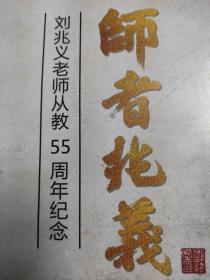 師者兆義
刘兆义老师从教55周年纪念